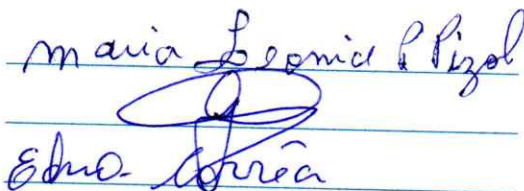 Maria Leonid P Pizol
Edna Corrêa